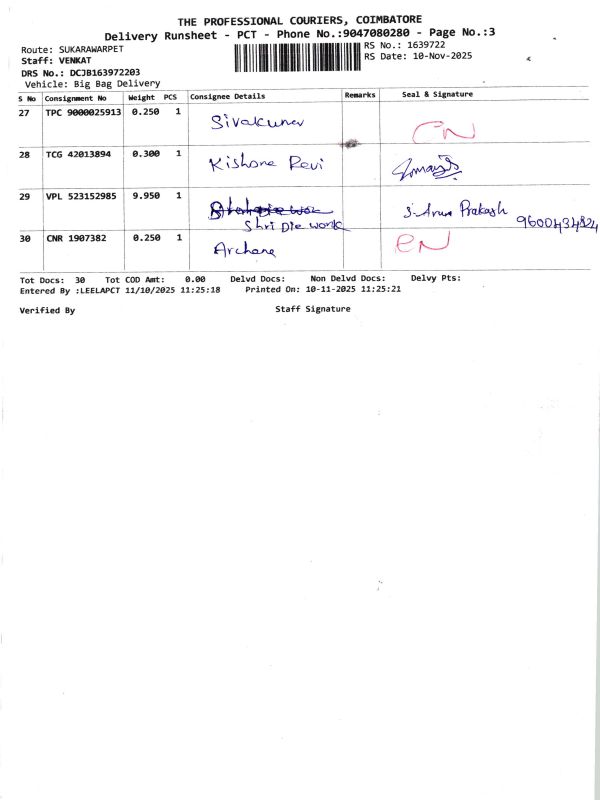 THE PROFESSIONAL COURIERS, COIMBATORE
Delivery Runsheet - PCT - Phone No.:9047080280 - Page No.:3
Route: SUKARAWARPET
RS No.: 1639722
Staff: VENKAT
RS Date: 10-Nov-2025
DRS No.: DCJB163972203
Vehicle: Big Bag Delivery
S No Consignment No Weight PCS Consignee Details Remarks Seal & Signature
27 TPC 9000025913 0.250 1 Sivakumar CN
28 TCG 42013894 0.300 1 Kishore Revi
29 VPL 523152985 9.950 1 S. Arun Prakash
Shri Die work 9600434824
30 CNR 1907382 0.250 1 Archane CN
Tot Docs: 30 Tot COD Amt: 0.00 Delvd Docs: Non Delvd Docs: Delvy Pts:
Entered By :LEELAPCT 11/10/2025 11:25:18 Printed On: 10-11-2025 11:25:21
Verified By Staff Signature